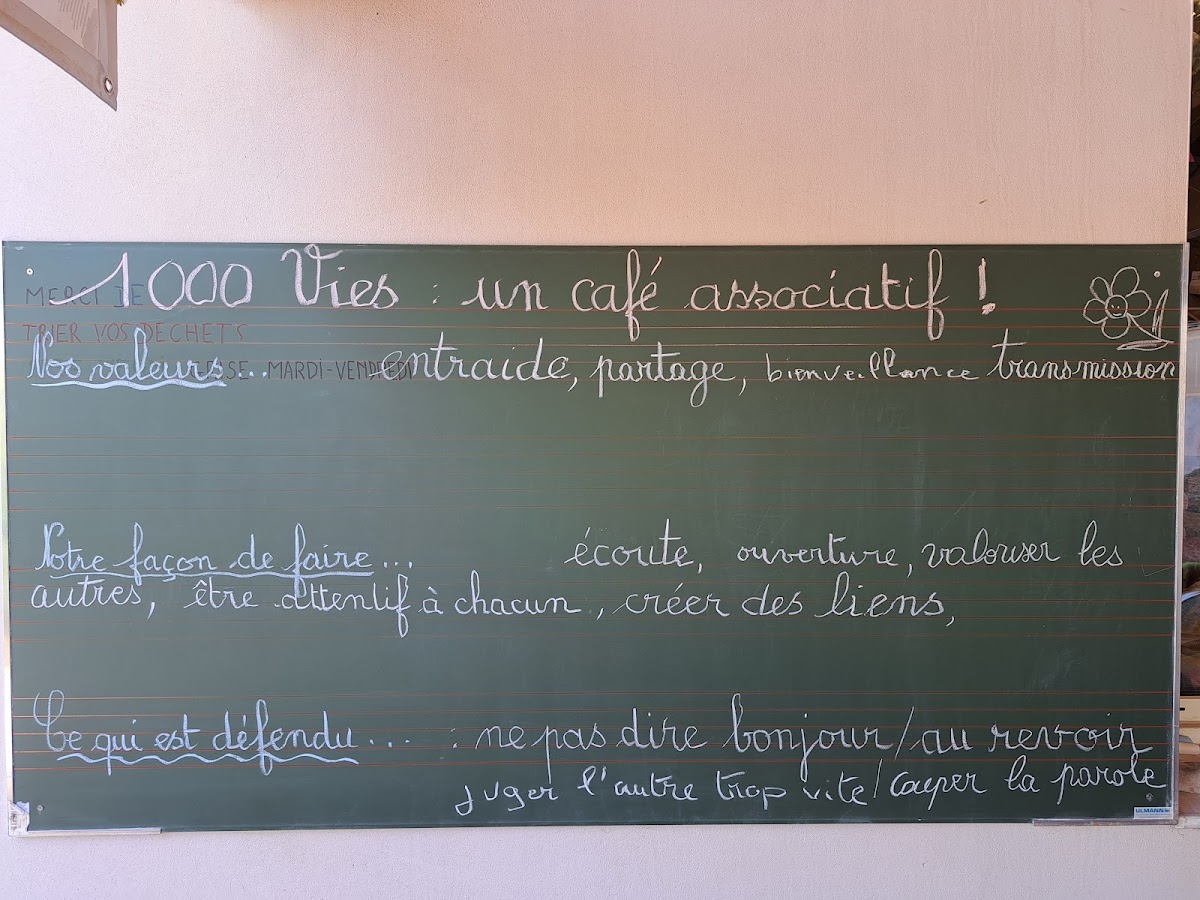 1000 Vies : un café associatif !
MERCI DE
TRIER VOS DECHETS
MARDI-VENDREDI
Nos valeurs... entraide, partage, bienveillance transmission
Notre façon de faire... écoute, ouverture, valoriser les
autres, être attentif à chacun, créer des liens,
Ce qui est défendu... : ne pas dire bonjour/au revoir
juger l'autre trop vite/couper la parole
ULMANN